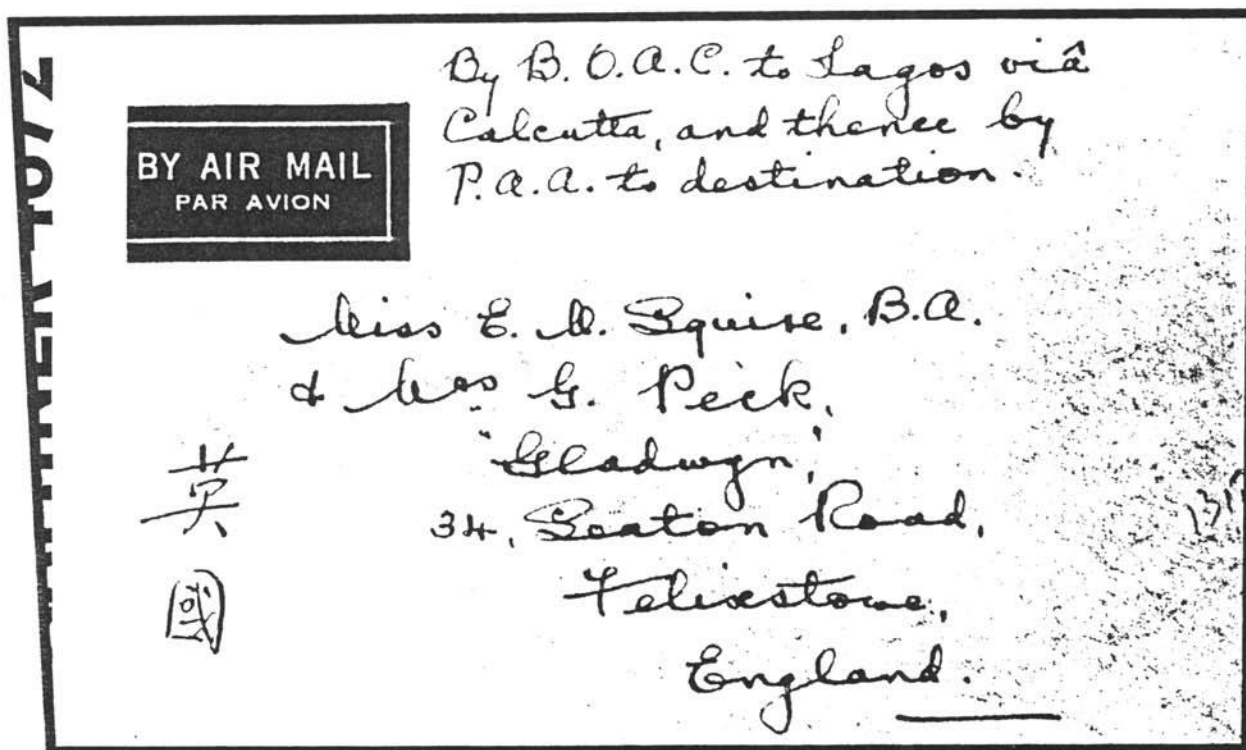 By B.O.A.C. to Lagos viâ
Calcutta, and thence by
P.A.A. to destination.
BY AIR MAIL
PAR AVION
Miss E. M. Squire, B.A.
& Mrs G. Peck,
"Gladwyn",
34, Seaton Road,
Felixstowe,
England.
英
國